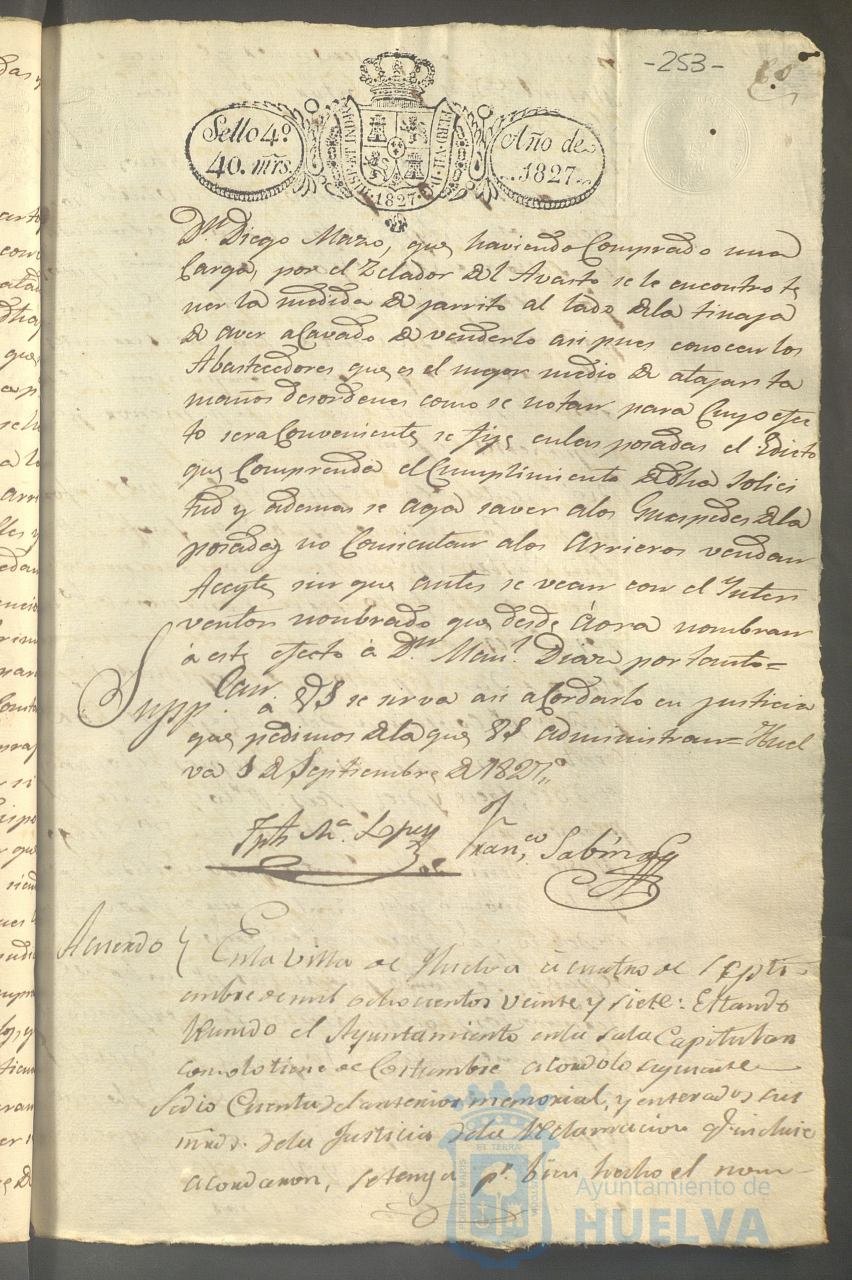 -253-
Sello 4º
40. mrs.
HISP. ET IND. R.
FERD. VII. D. G.
1827
Año de
1827
Dn. Diego Mazo, que haviendo Comprado una
Carga, por el Zelador del Avasto se le encontro te
ner la medida de jarrito al lado dela tinaja
de aver acavado de venderlo asi pues conocen los
Abastecedores que es el mejor medio de atajar ta
maños desordenes como se notan para Cuyo efec
to sera Conveniente se fije en las posadas el Edicto
que Comprenda el Cumplimiento de dha solici
tud y ademas se aga saver alos Guespedes dela
posadas no Consientan alos Arrieros vendan
Aceyte sin que antes se vean con el Inter
ventor nombrado que desde Áora nombran
a este efecto á Dn. Manl. Diaz por tanto=
Suppcan. a VS se sirva asi acordarlo en justicia
que pedimos dela que VS administran= Huel
va 1 de Septiembre de 1827
Jph Ma. Lopez Franco. Sabino
Acuerdo
En la villa de Huelva á cuatro de Septi-
embre de mil ochocientos veinte y siete: Estando
Reunido el Ayuntamiento en la sala Capitular
como lo tiene de Costumbre acordo lo siguiente
Se dio Cuenta del anterior memorial, y enterados sus
mrds. dela Justicia dela Reclamacion q. incluie
acordaron, se tenga pr. bien hecho el nom-
EL TERRA
Ayuntamiento de
HUELVA